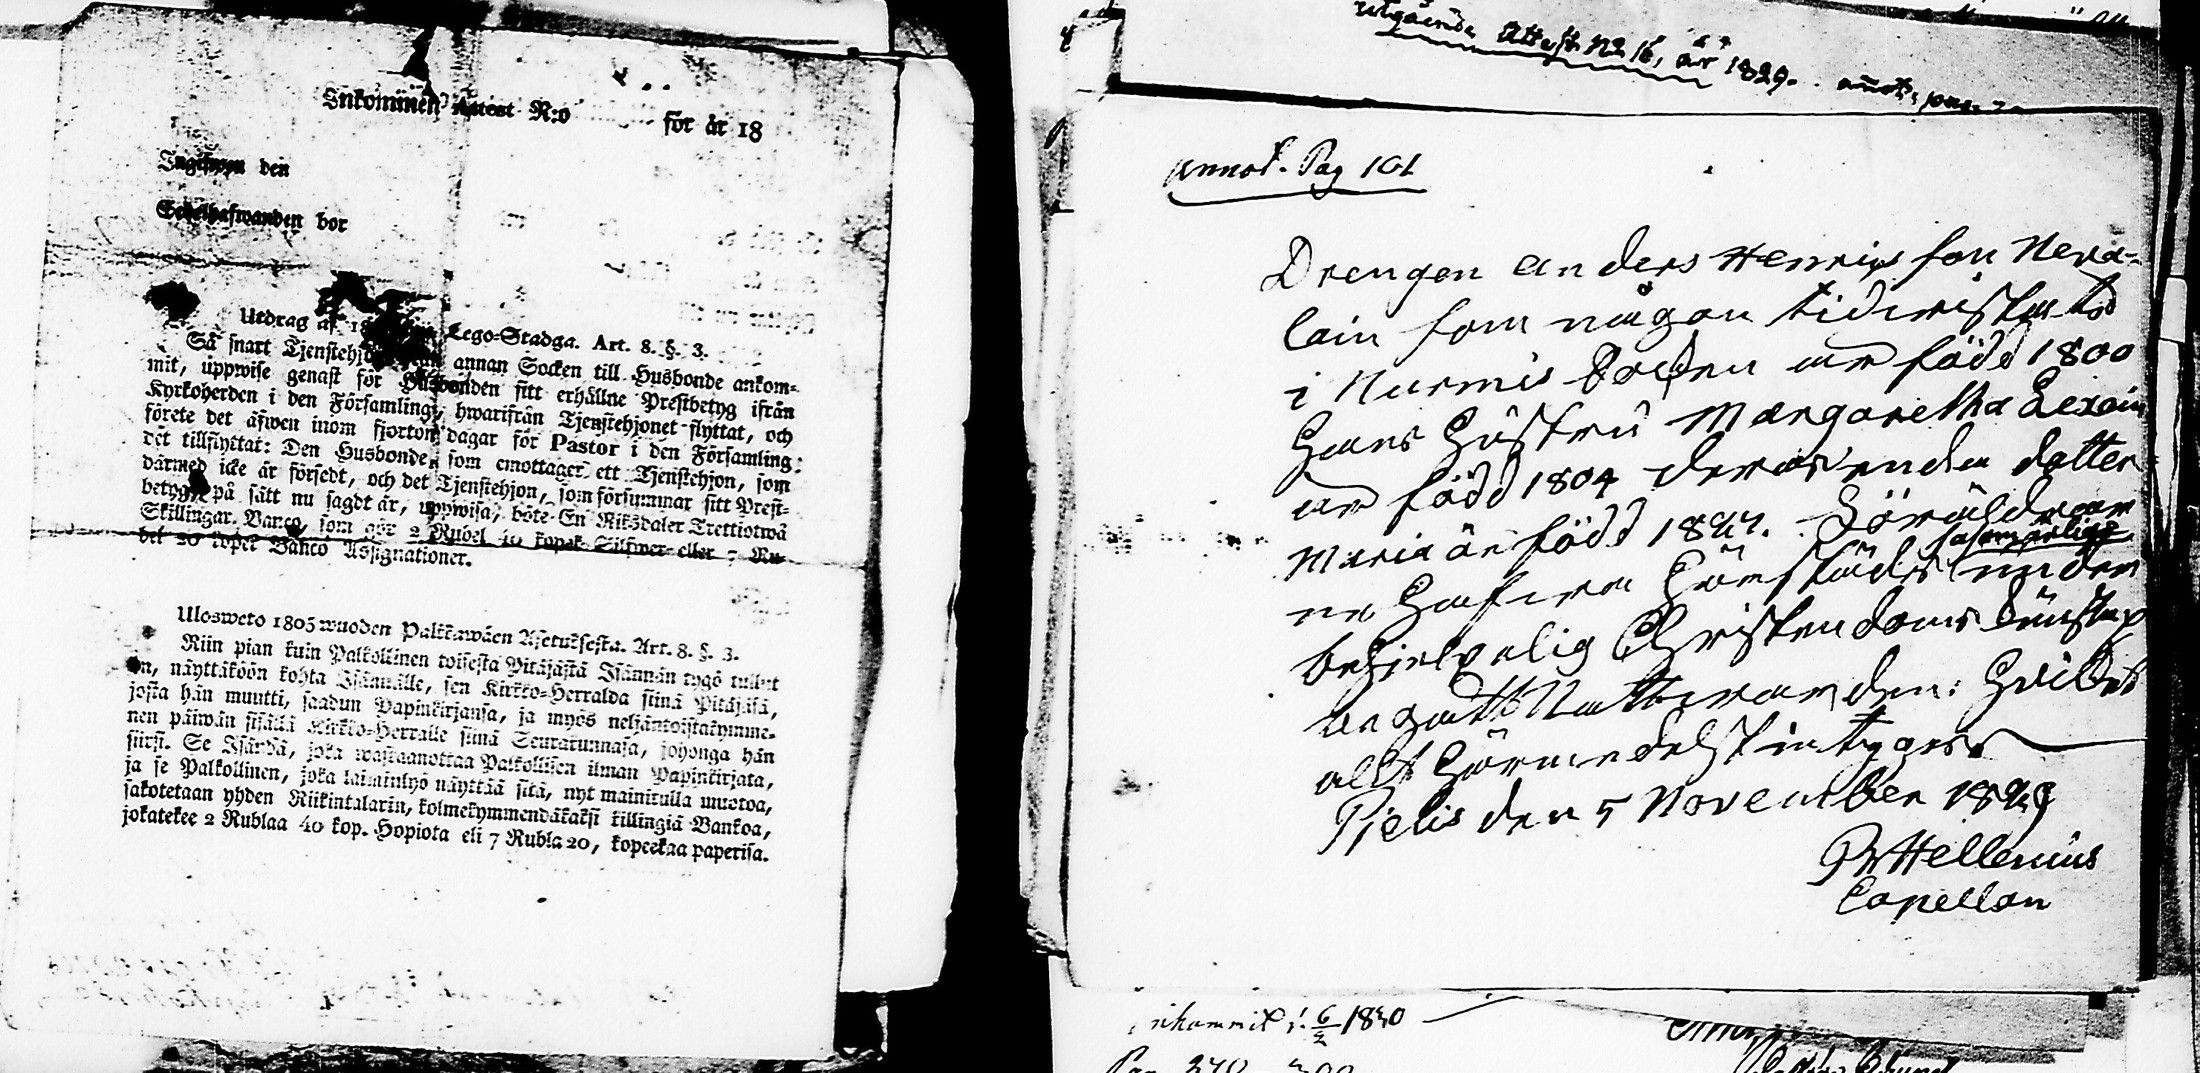 Inkommen Attest N:o för år 18
Ingifwen den
Sedelhafwanden bor
Utdrag af 18 Lego-Stadga. Art. 8. §. 3.
Så snart Tjenstehjon annan Socken till Husbonde ankom-
mit, uppwise genast för Husbonden sitt erhållne Prestbetyg ifrån
Kyrkoherden i den Församling, hwarifrån Tjenstehjonet flyttat, och
förete det äfwen inom fjorton dagar för Pastor i den Församling:
det tillflyttat: Den Husbonde, som emottager ett Tjenstehjon, som
därmed icke är försedt, och det Tjenstehjon, som försummar sitt Prest-
betyg, på sätt nu sagdt är, uppwisa, böte En Riksdaler Trettiotwå
Skillingar Banco, som gör 2 Rubel 40 kopek Silfwer eller 7 Ru-
bel 20 kopek Banco Assignationer.
Ulosweto 1805 wuoden Palkkawäen Asetuksesta. Art. 8. §. 3.
Niin pian kuin Palkollinen toisesta Pitäjästä Isännän tygö tullut
on, näyttäköön kohta Isännälle, sen Kirkko-Herralda siinä Pitäjäsä,
josta hän muutti, saadun Papinkirjansa, ja myös neljäntoistakymme-
nen päiwän sisällä Kirkko-Herralle siinä Seurakunnasa, johonga hän
siirsi. Se Isändä, joka wastaanottaa Palkollisen ilman Papinkirjata,
ja se Palkollinen, joka laiminlyö näyttää sitä, nyt mainitulla muotoa,
sakotetaan yhden Riikintalarin, kolmekymmendäkaksi killingiä Bankoa,
jokatekee 2 Rublaa 40 kop. Hopiota eli 7 Rubla 20, kopeekaa paperisa.
utgående Attest No 16, år 1829. annot. pag.
annot. Pag 101
Drengen Anders Henrics son Neva-
lain som någon tid wistats
i Nurmis Socken är född 1800
Hans Hustru Margaretha Lexain
är född 1804 deras enda dotter
Maria är född 1827. Föräldrar
ne hafwa härstädes sasom ärlige under
behjelpelig Christendoms kunskap
begått Nattwarden: hvilket
allt härmedelst intygas
Pielis den 5 November 1829
Hellenius
Capellan
inkommit d. 6/2 1830
Pag 370